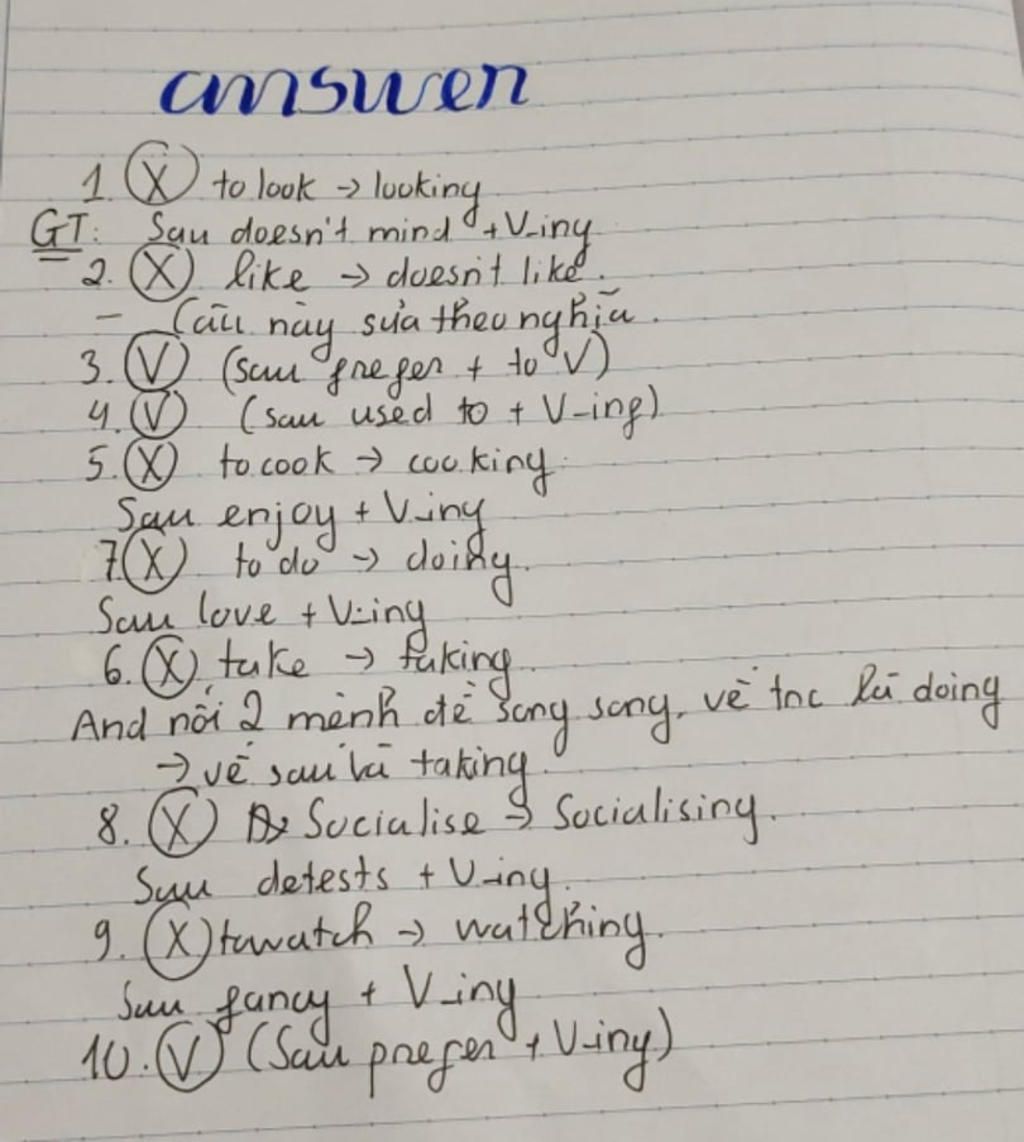 answer
1. (X) to look → looking
GT: Sau doesn't mind + V-ing
2. (X) like → doesn't like.
- Câu này sửa theo nghĩa.
3. (V) (sau prefer + to V)
4. (V) (sau used to + V-ing)
5. (X) to cook → cooking.
Sau enjoy + V-ing
7. (X) to do → doing.
Sau love + V-ing
6. (X) take → taking.
And nối 2 mệnh đề song song, vế trc là doing
→ vế sau là taking.
8. (X) Socialise → Socialising.
Sau detests + V-ing.
9. (X) to watch → watching.
Sau fancy + V-ing
10. (V) (Sau prefer + V-ing)